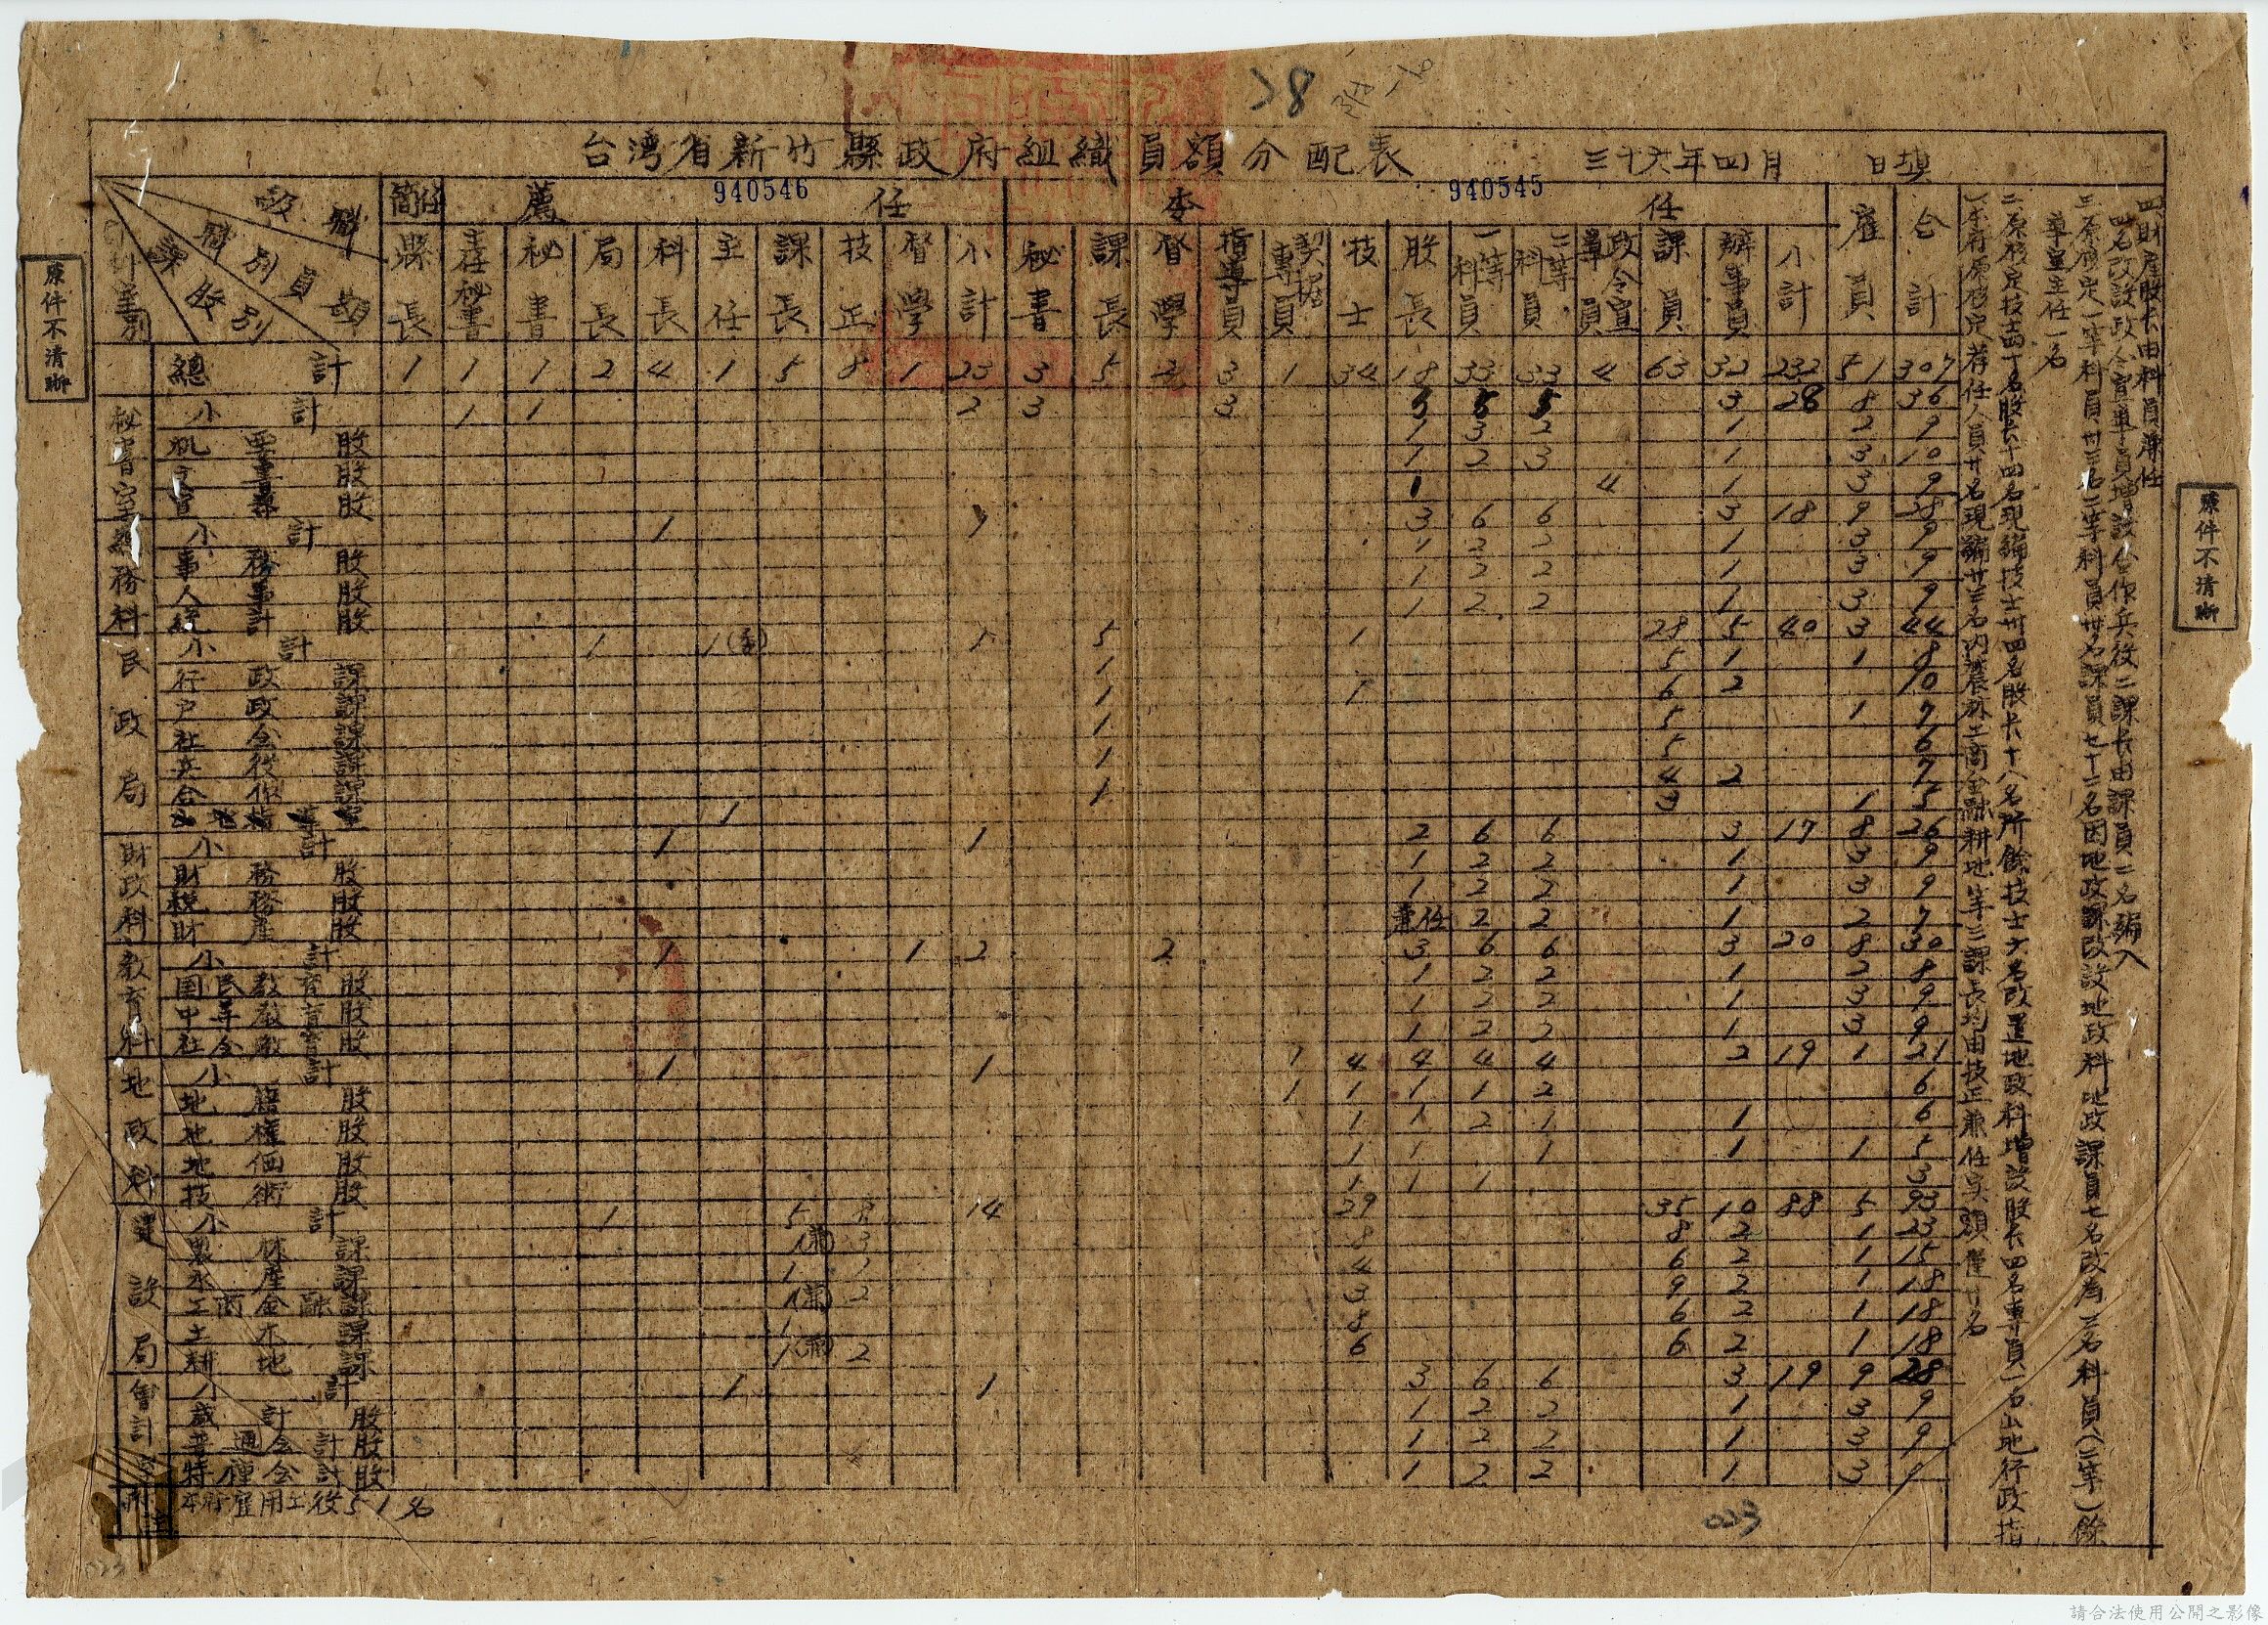 28
台湾省新竹縣政府組織員額分配表 三十六年四月 日填
940546 940545
原件不清晰
原件不清晰
簡任 薦任 委任 雇員 合計
職別 員額 課股別
縣長 主任秘書 秘書 局長 科長 主任 課長 技正 督學 小計 秘書 課長 督學 指導員 專員 技士 股長 一等科員 二等科員 政令宣導員 課員 辦事員 小計
總計 1 1 1 2 4 1 5 8 1 23 3 5 2 3 1 34 18 33 33 4 63 32 232 51 307
秘書室
小計 1 1 2 3 3 3 5 5 3 28 8 36
機要股 1 3 2 1 2 9
文書股 1 2 3 1 3 10
宣導股 1 4 1 3 9
總務科
小計 1 1 3 6 6 3 18 9 28
事務股 1 2 2 1 3 9
人事股 1 2 2 1 3 9
統計股 1 2 2 1 3 9
民政局
小計 1 1 1 5 1 28 5 40 3 44
行政課 1 5 1 1 8
戶政課 1 1 6 2 10
社会課 1 5 1 7
兵役課 1 5 6
合作課 1 4 2 7
1 3 1 5
財政科
小計 1 1 2 6 6 3 17 8 26
財務股 1 2 2 1 3 9
稅務股 1 2 2 1 3 9
財産股 兼任 2 2 1 2 7
教育科
小計 1 1 2 2 3 6 6 3 20 8 30
国民教育股 1 2 2 1 2 8
中等教育股 1 2 2 1 3 9
社会教育股 1 2 2 1 3 9
地政科
小計 1 1 1 4 4 4 4 2 19 1 21
地籍股 1 1 1 1 2 6
地權股 1 1 2 1 1 6
地価股 1 1 1 1 1 5
技術股 1 1 1 3
建設局
小計 1 5 8 14 29 35 10 88 5 93
農林課 1(兼) 3 8 8 2 1 23
水産課 1 1 4 6 2 1 15
工商金融課 1(兼) 2 3 9 2 1 18
土木課 1 8 6 2 1 18
耕地課 1(兼) 2 6 6 2 1 18
會計室
小計 1 1 3 6 6 3 19 9 28
歲計股 1 2 2 1 3 9
普通会計股 1 2 2 1 3 9
特種会計股 1 2 2 1 3 9
附註 本府雇用工役51名
四財産股長由科員兼任
名改設政令宣導員增設合作兵役二課長由課員二名編入
三原核定一等科員卅三名二等科員卅名課員七十二名因地政課改設地政科地政課員七名改為三名科員(二等)餘
導室主任一名
二原核定技士四十名股長十四名現編技士卅四名股長十八名所餘技士六名改置地政科增設股長四名專員一名山地行政指
一本府原核定荐任人員廿名現編廿三名内農林工商金融耕地等三課長均由技正兼任実額僅廿名
023
023
請合法使用公開之影像